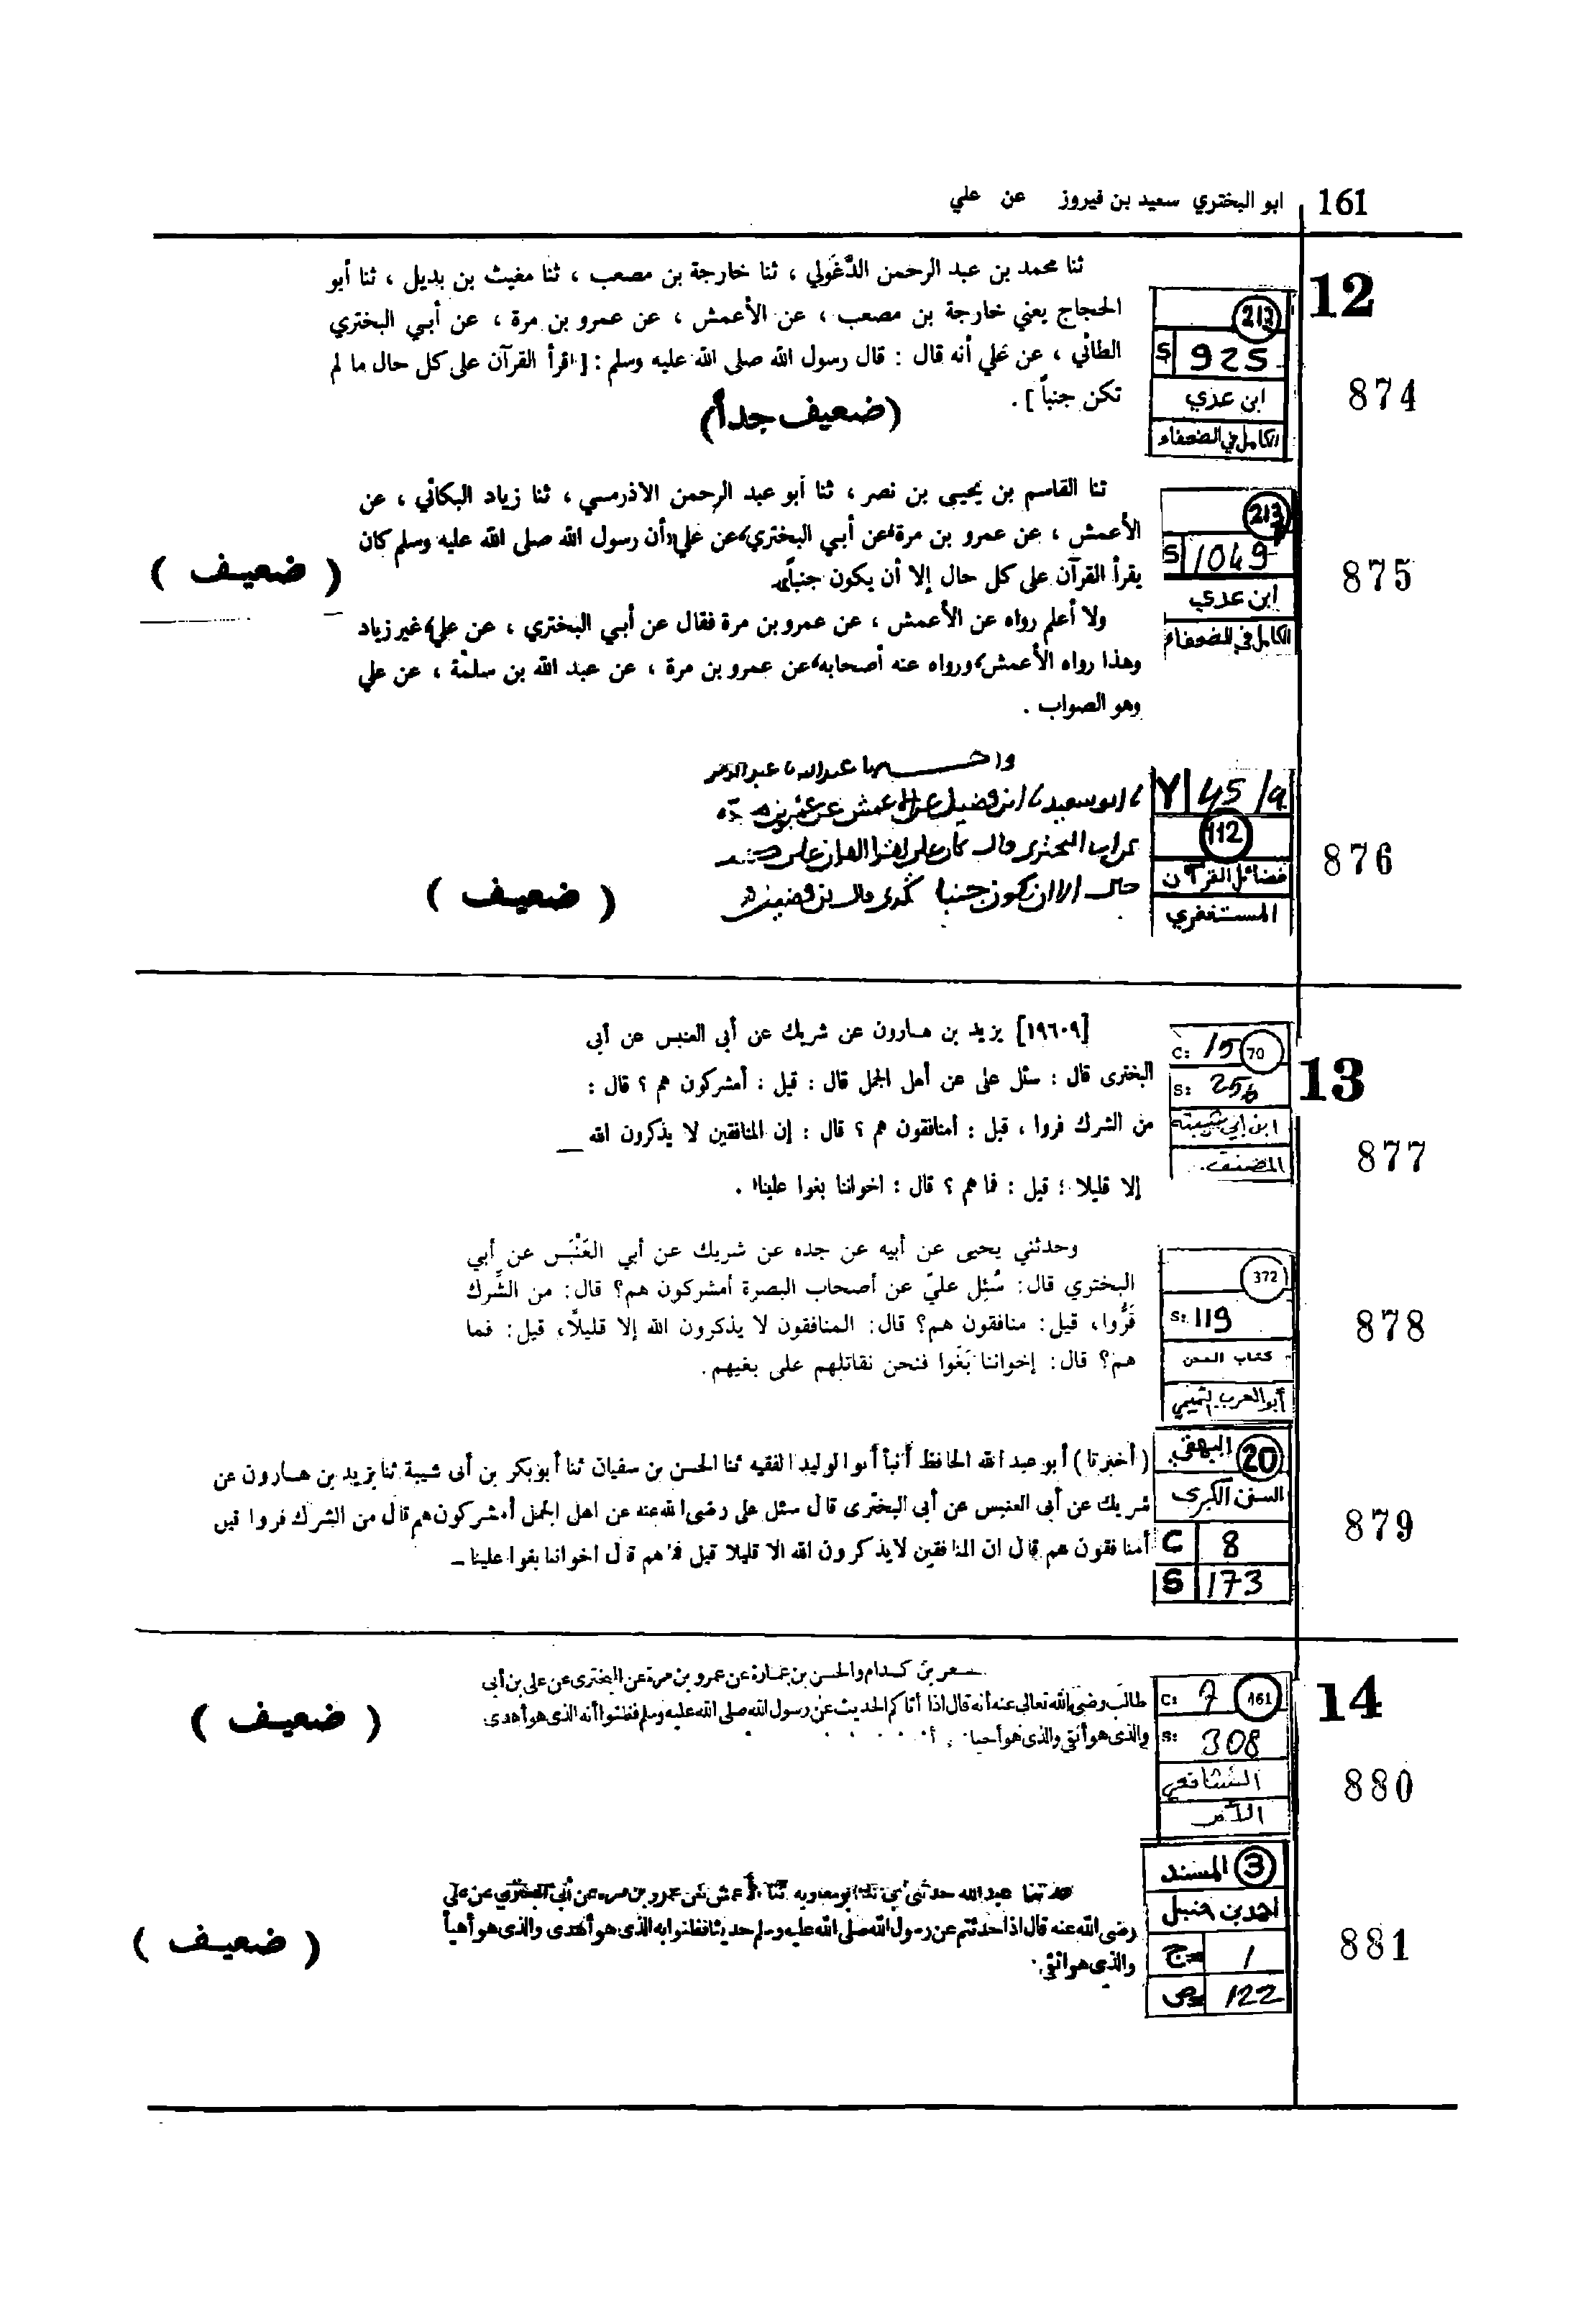 161 ابو البختري سعيد بن فيروز عن علي
12
ثنا محمد بن عبد الرحمن الدَّغَولي ، ثنا خارجة بن مصعب ، ثنا مغيث بن بديل ، ثنا أبو
الحجاج يعني خارجة بن مصعب ، عن الأعمش ، عن عمرو بن مرة ، عن أبي البختري
الطائي ، عن علي أنه قال : قال رسول الله صلى الله عليه وسلم : [ اقرأ القرآن على كل حال ما لم
تكن جنباً ] .
(ضعيف جداً)
213
S 925
ابن عدي
الكامل في الضعفاء
874
ثنا القاسم بن يحيى بن نصر ، ثنا أبو عبد الرحمن الاذرمي ، ثنا زياد البكائي ، عن
الأعمش ، عن عمرو بن مرة، عن أبي البختري، عن علي، أن رسول الله صلى الله عليه وسلم كان
يقرأ القرآن على كل حال إلا أن يكون جنباً.
ولا أعلم رواه عن الأعمش ، عن عمرو بن مرة فقال عن أبي البختري ، عن علي، غير زياد
وهذا رواه الأعمش، ورواه عنه أصحابه، عن عمرو بن مرة ، عن عبد الله بن سلمة ، عن علي
وهو الصواب .
( ضعيف )
213
S 1049
ابن عدي
الكامل في الضعفاء
875
عبد الله
ابو سعيد ابن فضيل عن الاعمش عن
البختري قال كان علي القران على
حال الا ان يكون جنبا
( ضعيف )
Y 45/a
112
فضائل القرآن
المستغفري
876
13
[١٩٦٠٩] يزيد بن هارون عن شريك عن أبي العنبس عن أبي
البخترى قال : سئل على عن أهل الجمل قال : قيل : أمشركون هم ؟ قال :
من الشرك فروا ، قيل : أمنافقون هم ؟ قال : إن المنافقين لا يذكرون الله
إلا قليلا ؛ قيل : فما هم ؟ قال : اخواننا بغوا علينا .
C: 15 70
S: 256
ابن ابي شيبة
المصنف
877
وحدثني يحيى عن أبيه عن جده عن شريك عن أبي العَنْبَس عن أبي
البختري قال: سُئِل عليّ عن أصحاب البصرة أمشركون هم؟ قال: من الشِّرك
فَرُّوا، قيل: منافقون هم؟ قال: المنافقون لا يذكرون الله إلا قليلًا، قيل: فما
هم؟ قال: إخواننا بَغَوا فنحن نقاتلهم على بغيهم.
372
S: 119
كتاب المحن
أبو العرب التميمي
878
( أخبرنا ) أبو عبد الله الحافظ أنبأ أبو الوليد الفقيه ثنا الحسن بن سفيان ثنا أبو بكر بن أبى شيبة ثنا يزيد بن هارون عن
شريك عن أبى العنبس عن أبى البخترى قال سئل على رضى الله عنه عن اهل الجمل أمشركون هم قال من الشرك فروا قيل
أمنافقون هم قال ان المنافقين لا يذكرون الله الا قليلا قيل فما هم قال اخواننا بغوا علينا ــ
20 البيهقي
السنن الكبرى
C 8
S 173
879
14
مسعر بن كدام والحسن بن عمارة عن عمرو بن مرة عن البخترى عن على بن أبي
طالب رضى الله تعالى عنه أنه قال اذا أتاكم الحديث عن رسول الله صلى الله عليه وسلم فظنوا أنه الذى هو أهدى
والذى هو أتقى والذى هو أحيا
( ضعيف )
C: 7 161
S: 308
الشافعي
الأم
880
حدثنا عبد الله حدثنى أبي ثنا أبو معاوية ثنا الأعمش عن عمرو بن مرة عن أبى البخترى عن على
رضى الله عنه قال اذا حدثتم عن رسول الله صلى الله عليه وسلم حديثا فظنوا به الذى هو أهدى والذى هو أهيأ
والذى هو اتقى
( ضعيف )
3 المسند
احمد بن حنبل
ج 1
ص 122
881